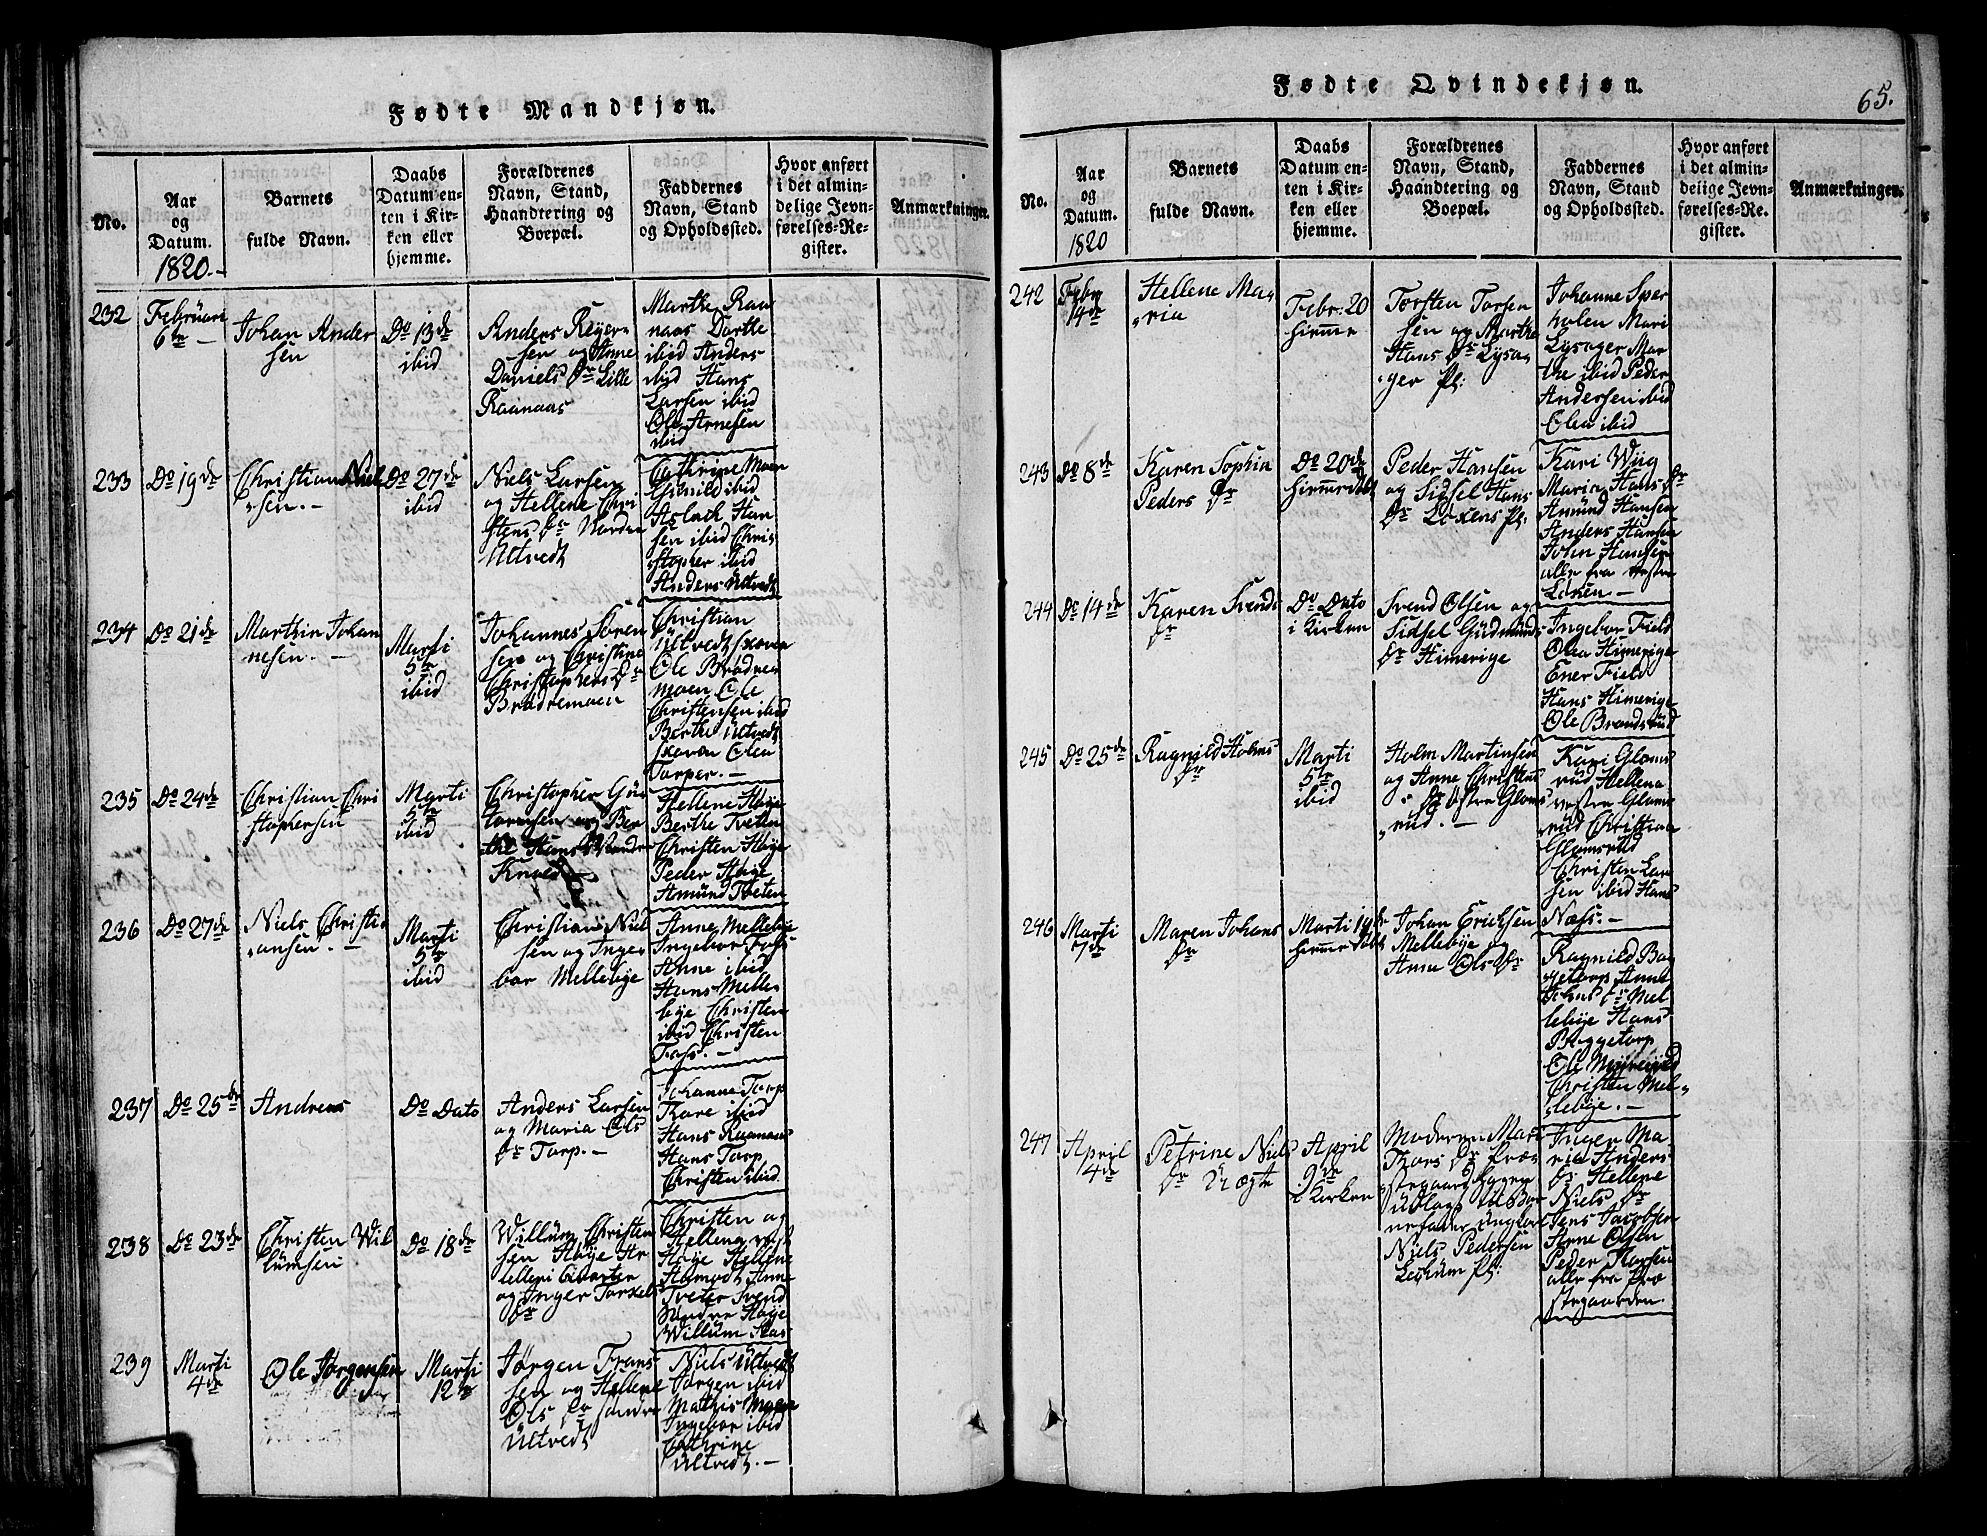 Fødte Mandkjøn.
No.
Aar
og
Datum.
1820.-
Barnets
fulde Navn.
Daabs
Datum en-
ten i Kir-
ken eller
hjemme.
Forældrenes
Navn, Stand,
Haandtering og
Boepæl.
Faddernes
Navn, Stand
og Opholdssted.
Hvor anført
i det almin-
delige Jevn-
førelses-Re-
gister.
Anmærkninger.
232
Februari
6te -
Johan Ander
sen
Do 13de
ibid
Anders Reyer-
sen og Anne
Daniels Dr Lille
Raanaas
Marthe Raa
naas Dorthe
ibid Anders
ibid Hans
Larsen ibid
Ole Arnesen
ibid
233
Do 19de
Christian Niel
sen. -
Do 27de
ibid
Niels Larsen
og Hellene Chri
stens Dr Nordre
Ultvedt
Cathrine Moen
Gunild ibid
Aslach Han
sen ibid Chris
stopher ibid
Anders Ultvedt
234
Do 21de
Marthin Johan
nesen. -
Marti
5te
ibid
Johannes Søren
sen og Christine
Christophers Dr
Brødremoen
Christian
Ultvedtskoven
Ole Brødre
moen Ole
Christensen ibid
Berthe Ultvedt
skoven Olea
Torper. -
235
Do 24de
Christian Chri
stophersen
Marti
5te
ibid
Christopher Gu
tormsen og Ber
the Hans Nordre
Knud
Hellene Høye
Berthe Tveten
Christen Høye
Peder Høye
Amund Tveten
236
Do 27de
Niels Christi
ansen. -
Marti
5te
ibid
Christian Niel
sen og Inge
bor Mellebye
Anne Mellebye
Ingebor Foss
Anne ibid
Hans Melle
bye Christen
ibid Christen
Foss. -
237
Do 25de
Andreas
Do Dato
Anders Larsen
og Maria Ols
Dr Torp. -
Johanne Torp
Kare ibid
Hans Raanaas
Hans Torp
Christen ibid
238
Do 23de
Christen Wil
lumsen
Do 18de
Willum Christen
sen Høye Ar
tilleri Qvarteer
og Inger Torkels
Dr
Christen og
Hellena vest
Høye Hellene
Hamodt Anne
Tveter Svend
Søndre Høye
Willum Aas
239
Marti
4de
Ole Jørgensen
Marti
12te
Jørgen Frans
sen og Hellene
Ols Dr søndre
Ultvedt
Niels Ultvedt
Jørgen ibid
Mathis Moen
Ingebor ibid
Cathrine
Ultvedt. -
Fødte Qvindekjøn.
65.
No.
Aar
og
Datum.
1820
Barnets
fulde Navn.
Daabs
Datum en-
ten i Kir-
ken eller
hjemme.
Forældrenes
Navn, Stand,
Haandtering og
Boepæl.
Faddernes
Navn, Stand
og Opholdssted.
Hvor anført
i det almin-
delige Jevn-
førelses-Re-
gister.
Anmærkninger.
242
Febr
14de
Hellene Ma
ria
Febr. 20
hiemme
Torsten Torsen
sen og Marthe
Hans Dr Lysa
ger Pl:
Johanne Sper
holen Mari
Lysager Mar
the ibid Peder
Andersen ibid
Olea ibid
243
Do 8de
Karen Sophia
Peders Dr
Do 20de
hiemmedøbt
Peder Hansen
og Sidsel Hans
Dr Løkens Pl:
Kari Wiig
Maria Hans Dr
Amund Hansen
Anders Hansen
John Hansen
alle fra vestre
Løken. -
244
Do 14de
Karen Svends
Dr
Do Dato
i Kirken
Svend Olsen og
Sidsel Gudmunds
Dr Himerige
Ingebor Field
Olea Himerige
Ener Field
Hans Himerige
Ole Brandsrud
245
Do 25de
Ragnild Holms
Dr
Marti
5te
ibid
Holm Martinsen
og Anne Christens
Dr østre Gloms
rud. -
Kari Gloms
rud Hellena
vestre Gloms
rud Christian
Glomsrud
Christen Lar
sen ibid Hans
Næss. -
246
Marti
7de
Maren Johans
Dr
Marti 19de
hiemmedøbt
Johan Erichsen
Mellebye og
Anne Ols Dr
Ragnild Bag
getorp Anne
Johns Dr Mel
lebye Hans
Baggetorp
Christen Mel
lebye. -
247
April
4de
Petrine Niels
Dr Uægte
April
9de
i Kirken
Moderen Mari
Thors Dr Præs
stegaards Eyern
Udlagt til Bar
nefader Ungkar
Niels Pedersen
Leckum Pl:
Inger Ma
ria Anders
Dr Hellene
Niels Dr
Jens Jacobsen
Arne Olsen
Peder Larsen
alle fra Præ
stegaarden.